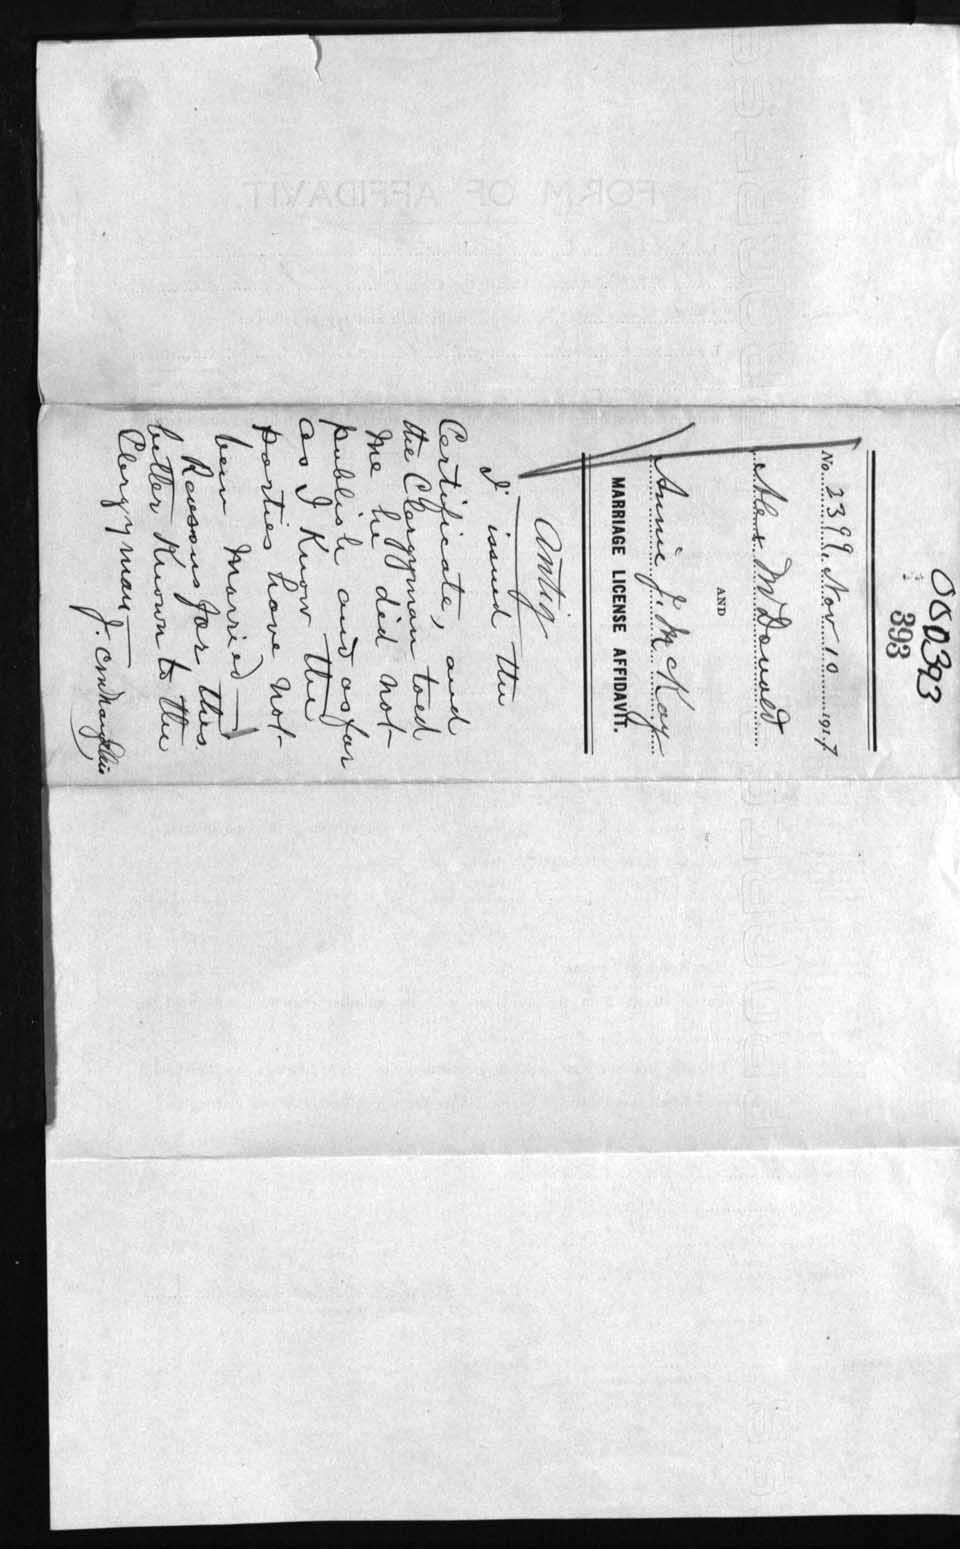 000393
393
No. 2399. Nov. 10 1917
Alex McDonald
AND
Annie J. McKay
MARRIAGE LICENSE AFFIDAVIT.
Antig
I issued the
Certificate, and
the Clergyman toed
me he did not
publish and as far
as I Know the
parties have not
been Married —
Reasons for this
better Known to the
Clergyman —
J.
FORM OF AFFIDAVIT.